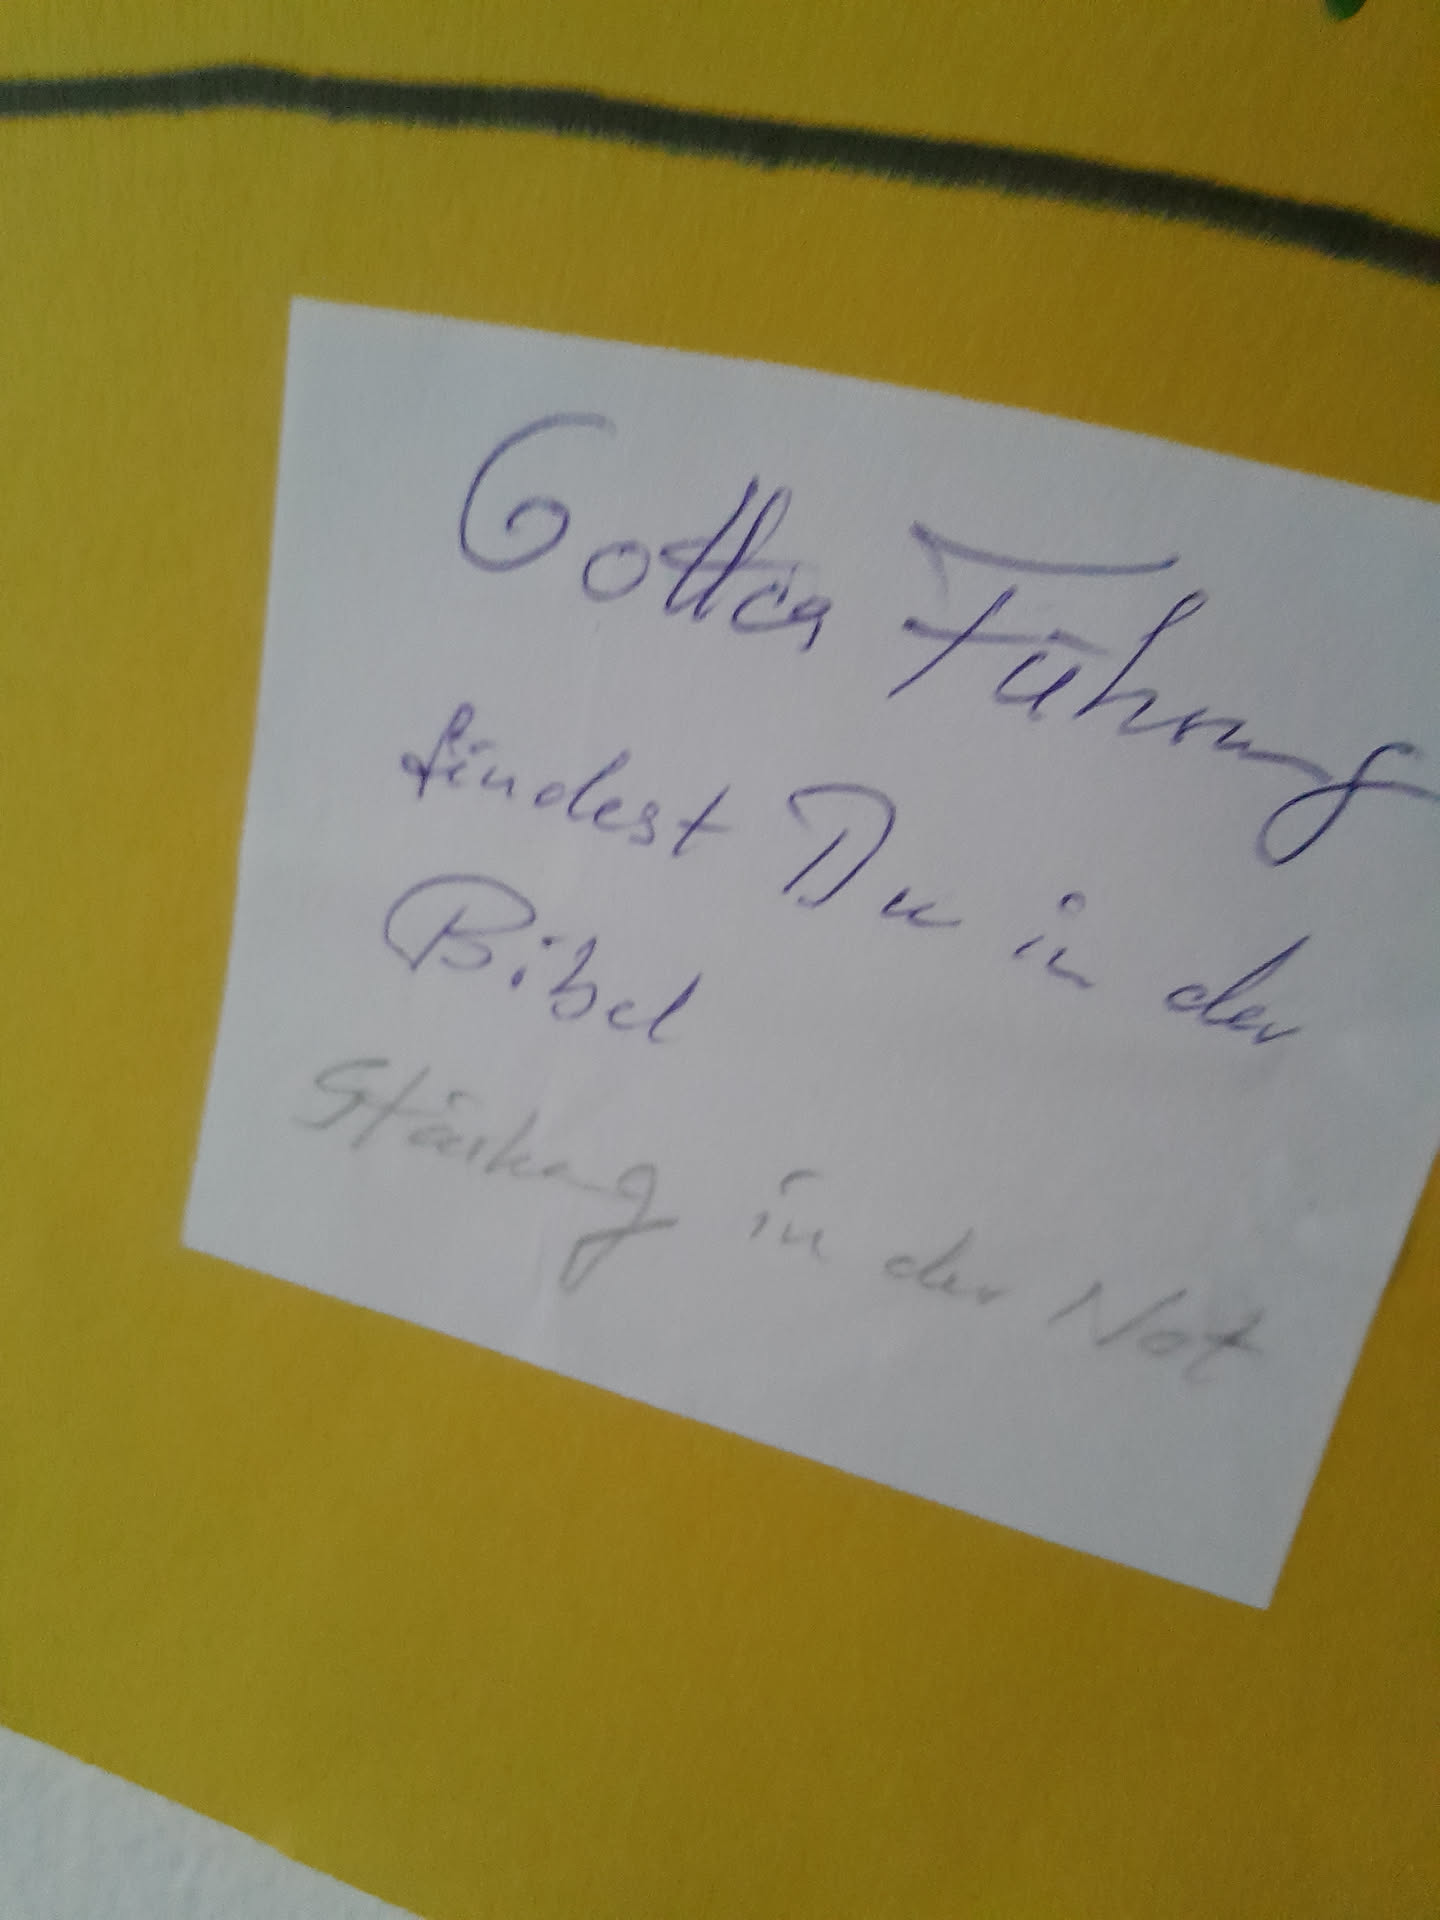 Gottes Führung
findest Du in der
Bibel
Stärkung in der Not